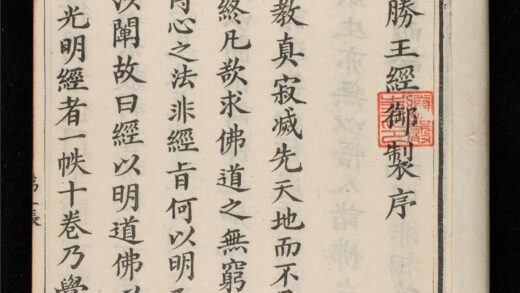 勝王經御製序
教真寂滅先天地而不
終凡欲求佛道之無窮
心之法非經旨何以明
闡故曰經以明道佛
光明經者一帙十卷乃學